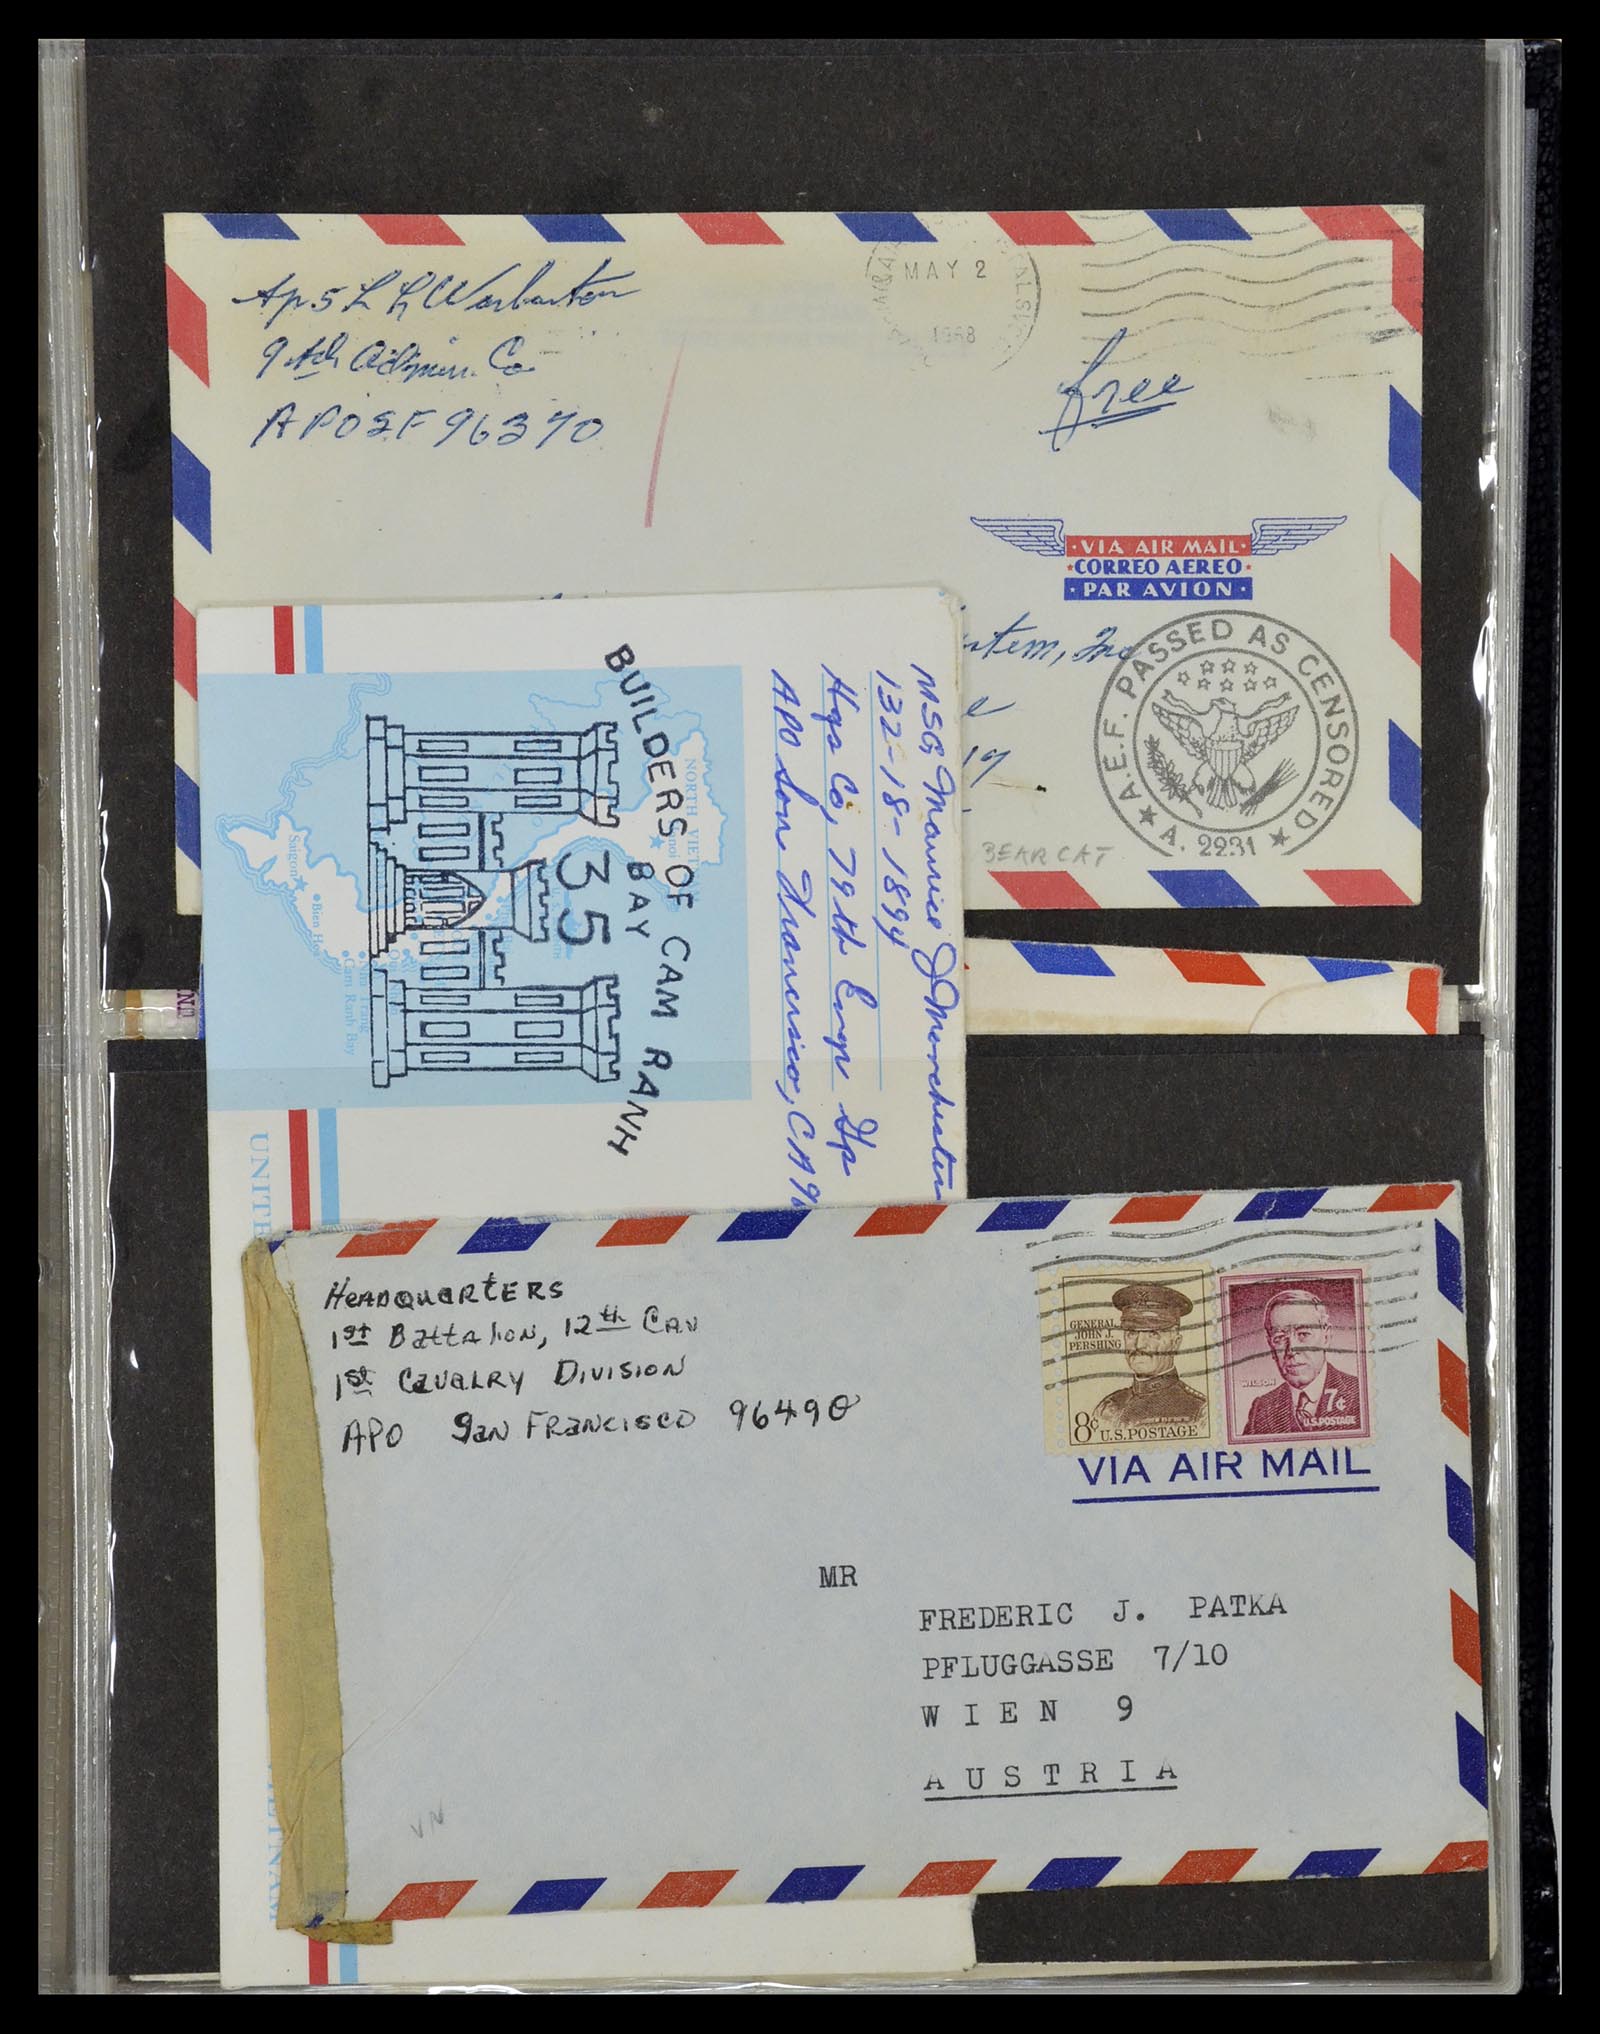 MAY 2
1968
9th Admin. Co
APO SF 96370
free
VIA AIR MAIL
CORREO AEREO
PAR AVION
A.E.F. PASSED AS CENSORED
A. 2231
BEARCAT
MSG Maurice J
132-18-1894
Hqs Co, 79th Engr Gp
APO San Francisco, CA 96
BUILDERS OF CAM RANH
BAY
35
NORTH VIET
Saigon
Bien Hoa
Cam Ranh Bay
Nha Trang
UNITE
VIETNAM
HEADQUARTERS
1st Battalion, 12th CAV
1st CAVALRY DIVISION
APO San FRANCISCO 96490
GENERAL
JOHN J.
PERSHING
8¢ U.S. POSTAGE
WILSON
7¢
U.S. POSTAGE
VIA AIR MAIL
MR
FREDERIC J. PATKA
PFLUGGASSE 7/10
WIEN 9
AUSTRIA
VN